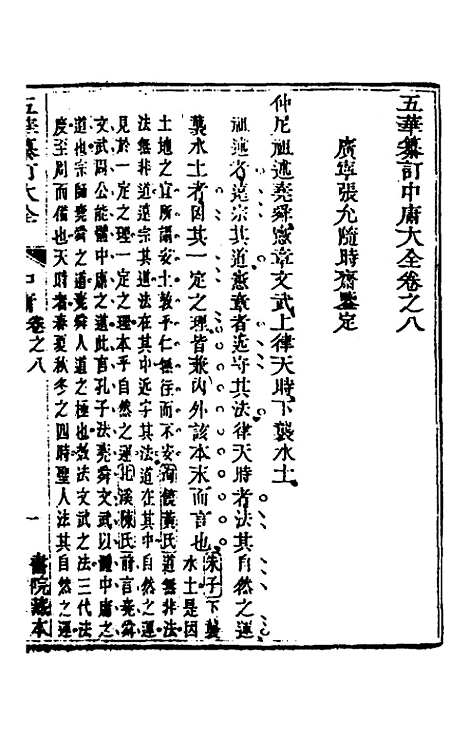 五華纂訂中庸大全卷之八
廣寧張允隨時齋鑒定
仲尼祖述堯舜憲章文武上律天時下襲水土
祖述者遠宗其道憲章者近守其法律天時者法其自然之運
襲水土者因其一定之理皆兼內外該本末而言也朱子下襲
水土是因
土地之宜所謂安土敦乎仁無往而不安
道無非法
法無非道遠宗其道法在其中近守其法道在其中自然之運
見於一定之理一定之理本乎自然之運北溪陳氏前言堯舜
文武周公能體中庸之道此言孔子法堯舜文武以體中庸之
道也宗師堯舜之道堯舜人道之極也效法文武之法三代法
度至周而備也天時者春夏秋冬之四時聖人法其自然之運
五華纂訂大全
中庸 卷之八
一
書院藏本